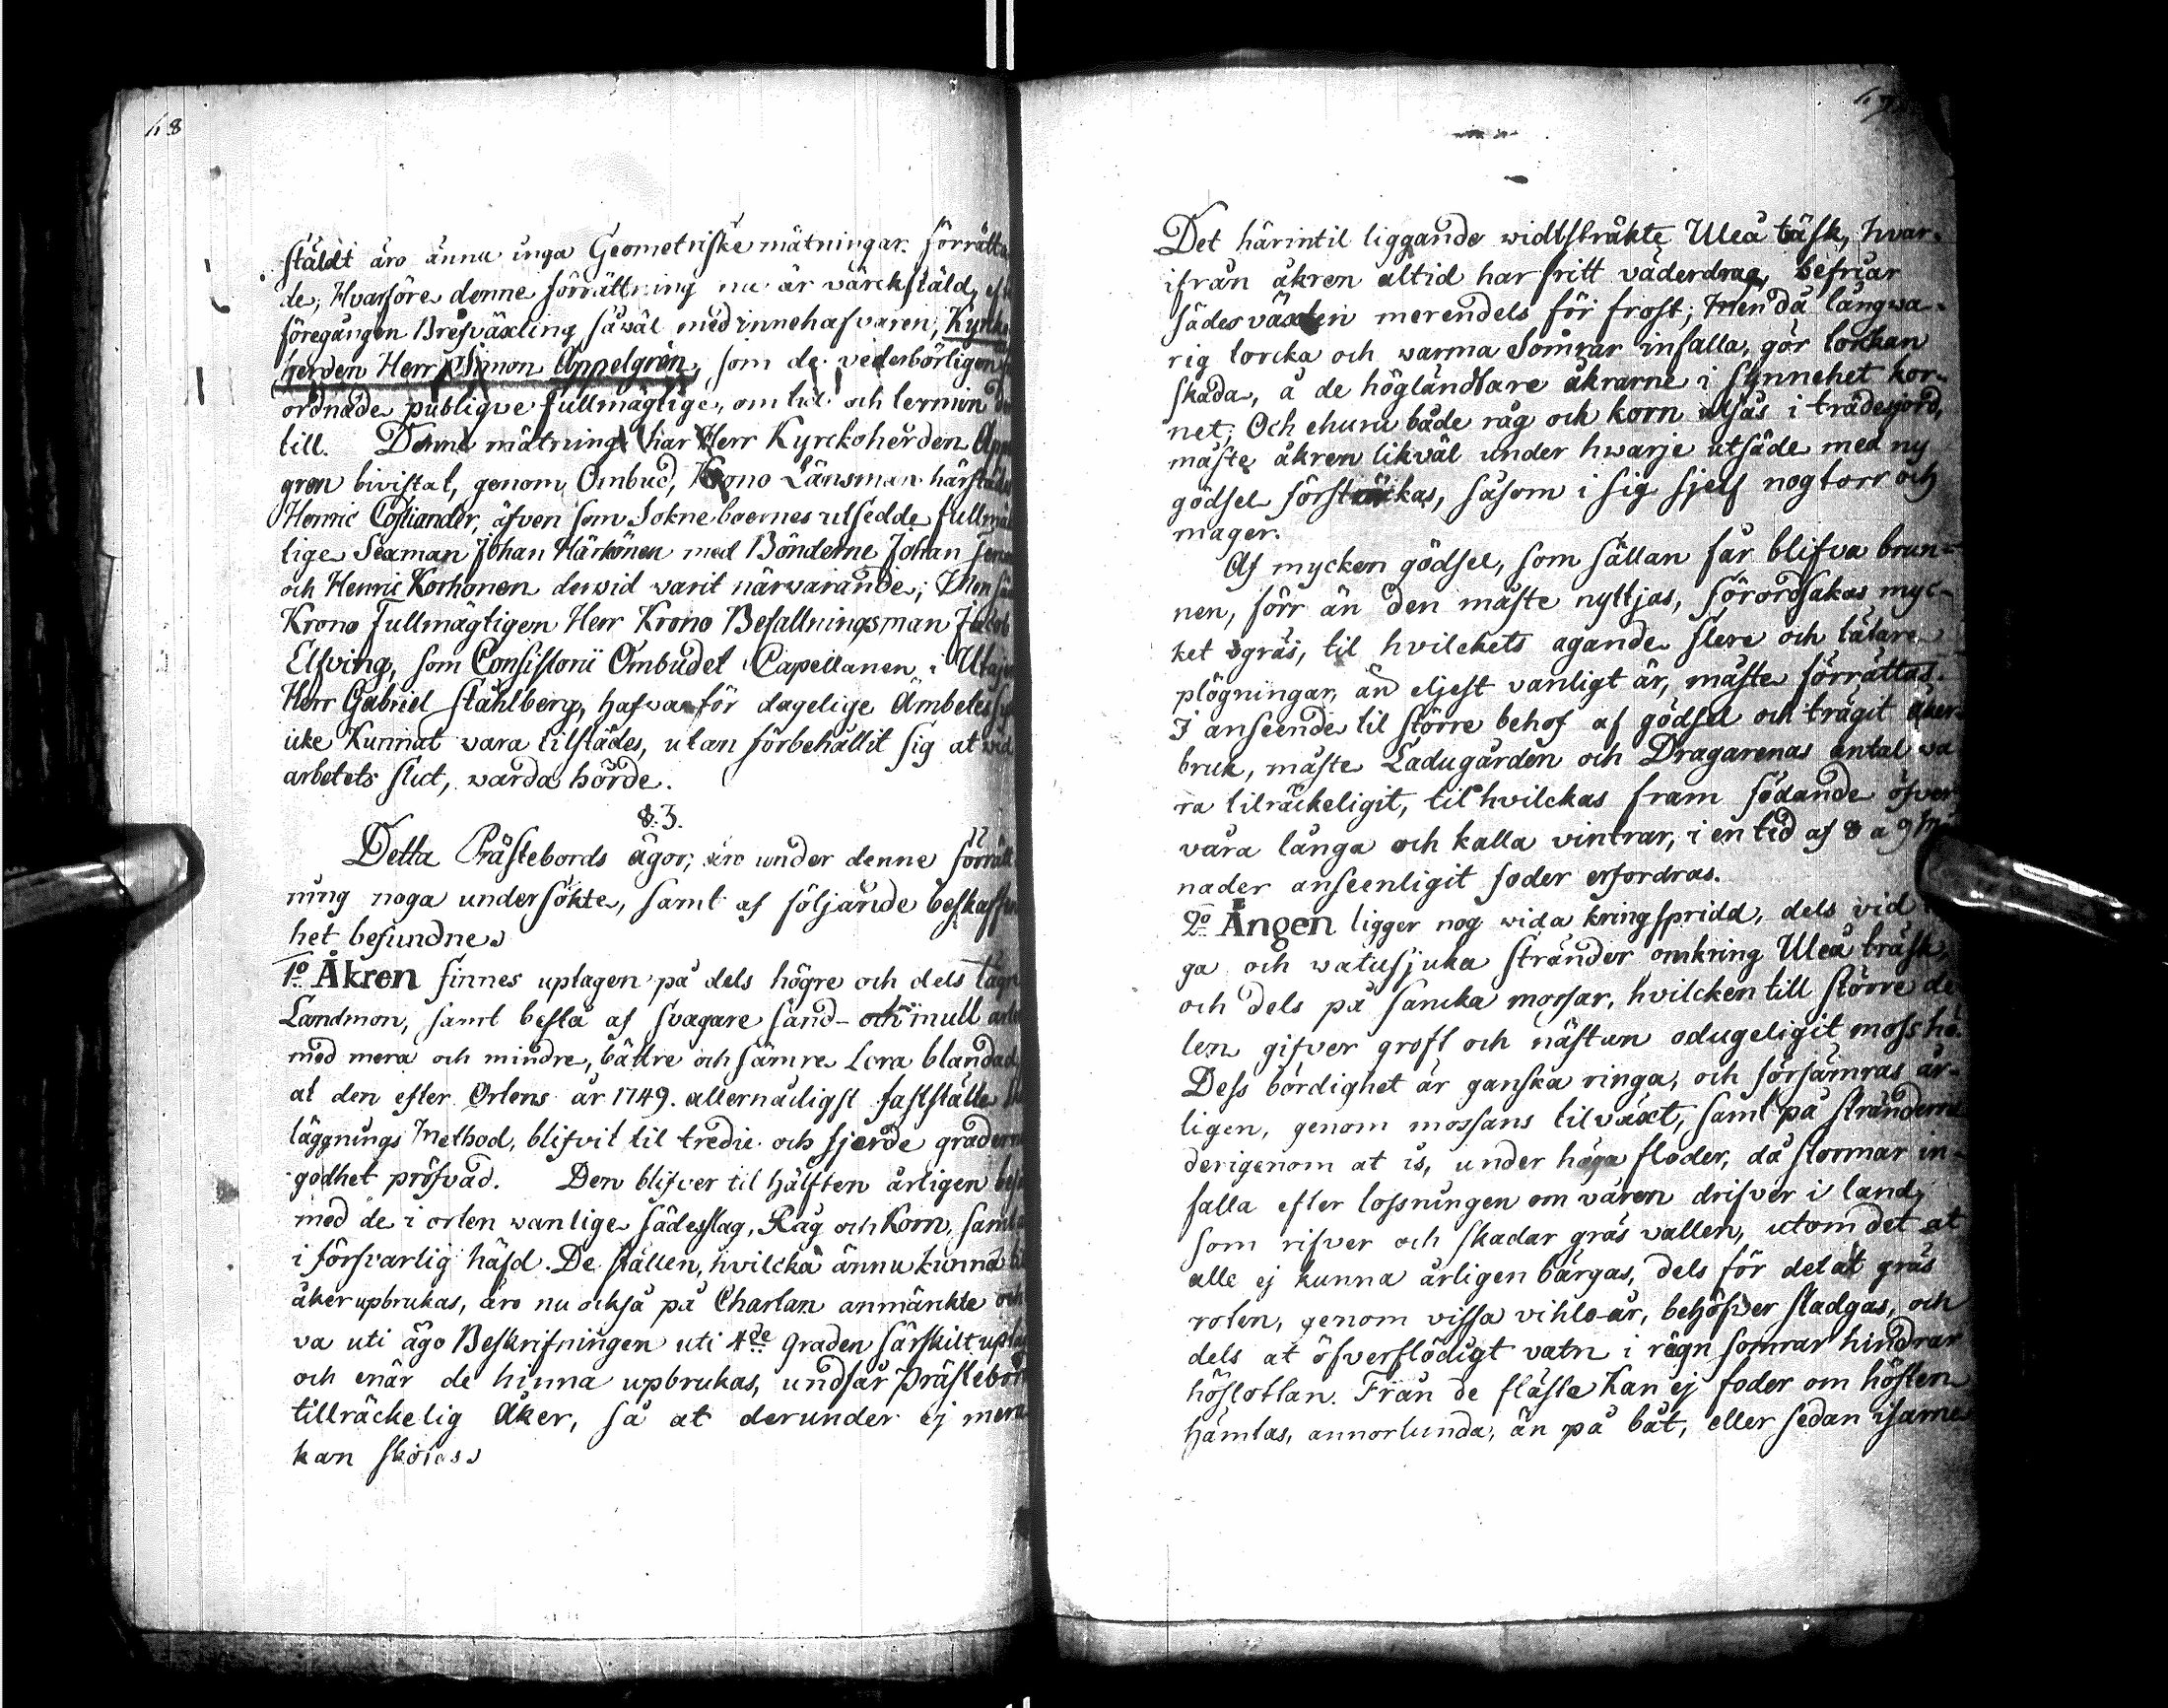 48
ståldt äro ännu inga Geometriske mätningar förrätta
de, Hvarföre denne förrättning nu är värckstäld, eft
föregången Brefväxling såwäl med innehafvaren, Kyrko
herden Herr Simon Appelgrén, som de vederbörligen
ordnade publique fullmägtige, om tid och termin der
till. Denne mätning har Herr Kyrckoherden App
gren bivistat, genom Ombud, Krono Länsman härstädes
Henric Costiander, äfven som Sokneboernes utsedde fullmäg
tige Sexman Johan Härkönen med Bönderne Johan
och Henric Korhonen derwid warit närwarande; Men så
Krono Fullmägtigen Herr Krono Befallningsman Jacob
Elfving, som Consistorii Ombudet Capellanen i Utajär
Herr Gabriel Ståhlberg, hafva för dagelige Ämbetes
icke Kunnat vara tilstädes, utan förbehållit sig at wid
arbetets slut, warda hörde.
§. 3.
Detta Prästebords ägor, äro under denne förrätt
ning noga undersökte, samt af följande beskaffen
het befundne.
1o Åkren finnes uptagen på dels högre och dels lägre
Landmon, samt bestå af svagare sand- och mull art
med mera och mindre, bättre och sämre Lera blandad,
at den efter Ortens år 1749. allernådigst faststälte
läggnings Method, blifvit til tredie och fjerde gradern
godhet pröfvad. Den blifver til hälften årligen
med de i orten wanlige sädesslag, Råg och Korn, samt
i försvarlig häfd. De ställen, hvilcka ännu kunna til
åker upbrukas, äro nu också på Chartan anmärckte och
va uti ägo Beskrifningen uti 4de Graden särskilt upta
och enär de hinna upbrukas, undfår Prästebord
tillräckelig Åker, så at derunder ej mera
kan skötas.
49
Det härintil liggande widtsträkte Uleå täsk, hvar-
ifrån åkren altid har fritt väderdrag, befriar
sädesväxten merendels för frost; Men då långwa-
rig torcka och warma Somrar infalla, gör torkan
skada, å de högländtare åkrarne i synnehet kor-
net; Och ehuru både råg och korn utsås i trädesjord,
måste åkren likväl under hwarje utsäde med ny
gödsel förstärckas, såsom i sig sjelf nog torr och
mager.
Af mycken gödsel, som sällan får blifva brun-
nen, förr än den måste nyttjas, förordsakas myc-
ket ogräs, til hvilckets agande flere och tätare
plögningar, än eljest vanligt är, måste förrättas.
I anseende til större behof af gödsel och trägit åker-
bruk, måste Ladugården och Dragarenas antal va
ra tilräckeligit, til hvilckas fram födande öfver
våra långa och kalla vintrar, i en tid af 8 a 9 Må
nader anseenligit foder erfordras.
2o Ängen ligger nog wida kringspridd, dels vid
ga och watusjuka stränder omkring Uleå träsk,
och dels på sancka mossar, hvilcken till större de
len gifver groft och nästan odugeligit mosshö.
Dess bördighet är ganska ringa, och försämras år-
ligen, genom mossans tilväxt, samt på stränderne
derigenom at is, under höga floder, då stormar in-
falla efter lossningen om våren drifver i land,
som rifver och skadar gräs vallen, utom det at
alle ej kunna årligen bärgas, dels för det at gräs
roten, genom vissa vihlo-år, behöfver stadgas, och
dels at öfverflödigt vatn i rägn somrar hindrar
höslottan. Från de fläste Kan ej foder om hösten
hämtas, annorlunda, än på båt, eller sedan isarne